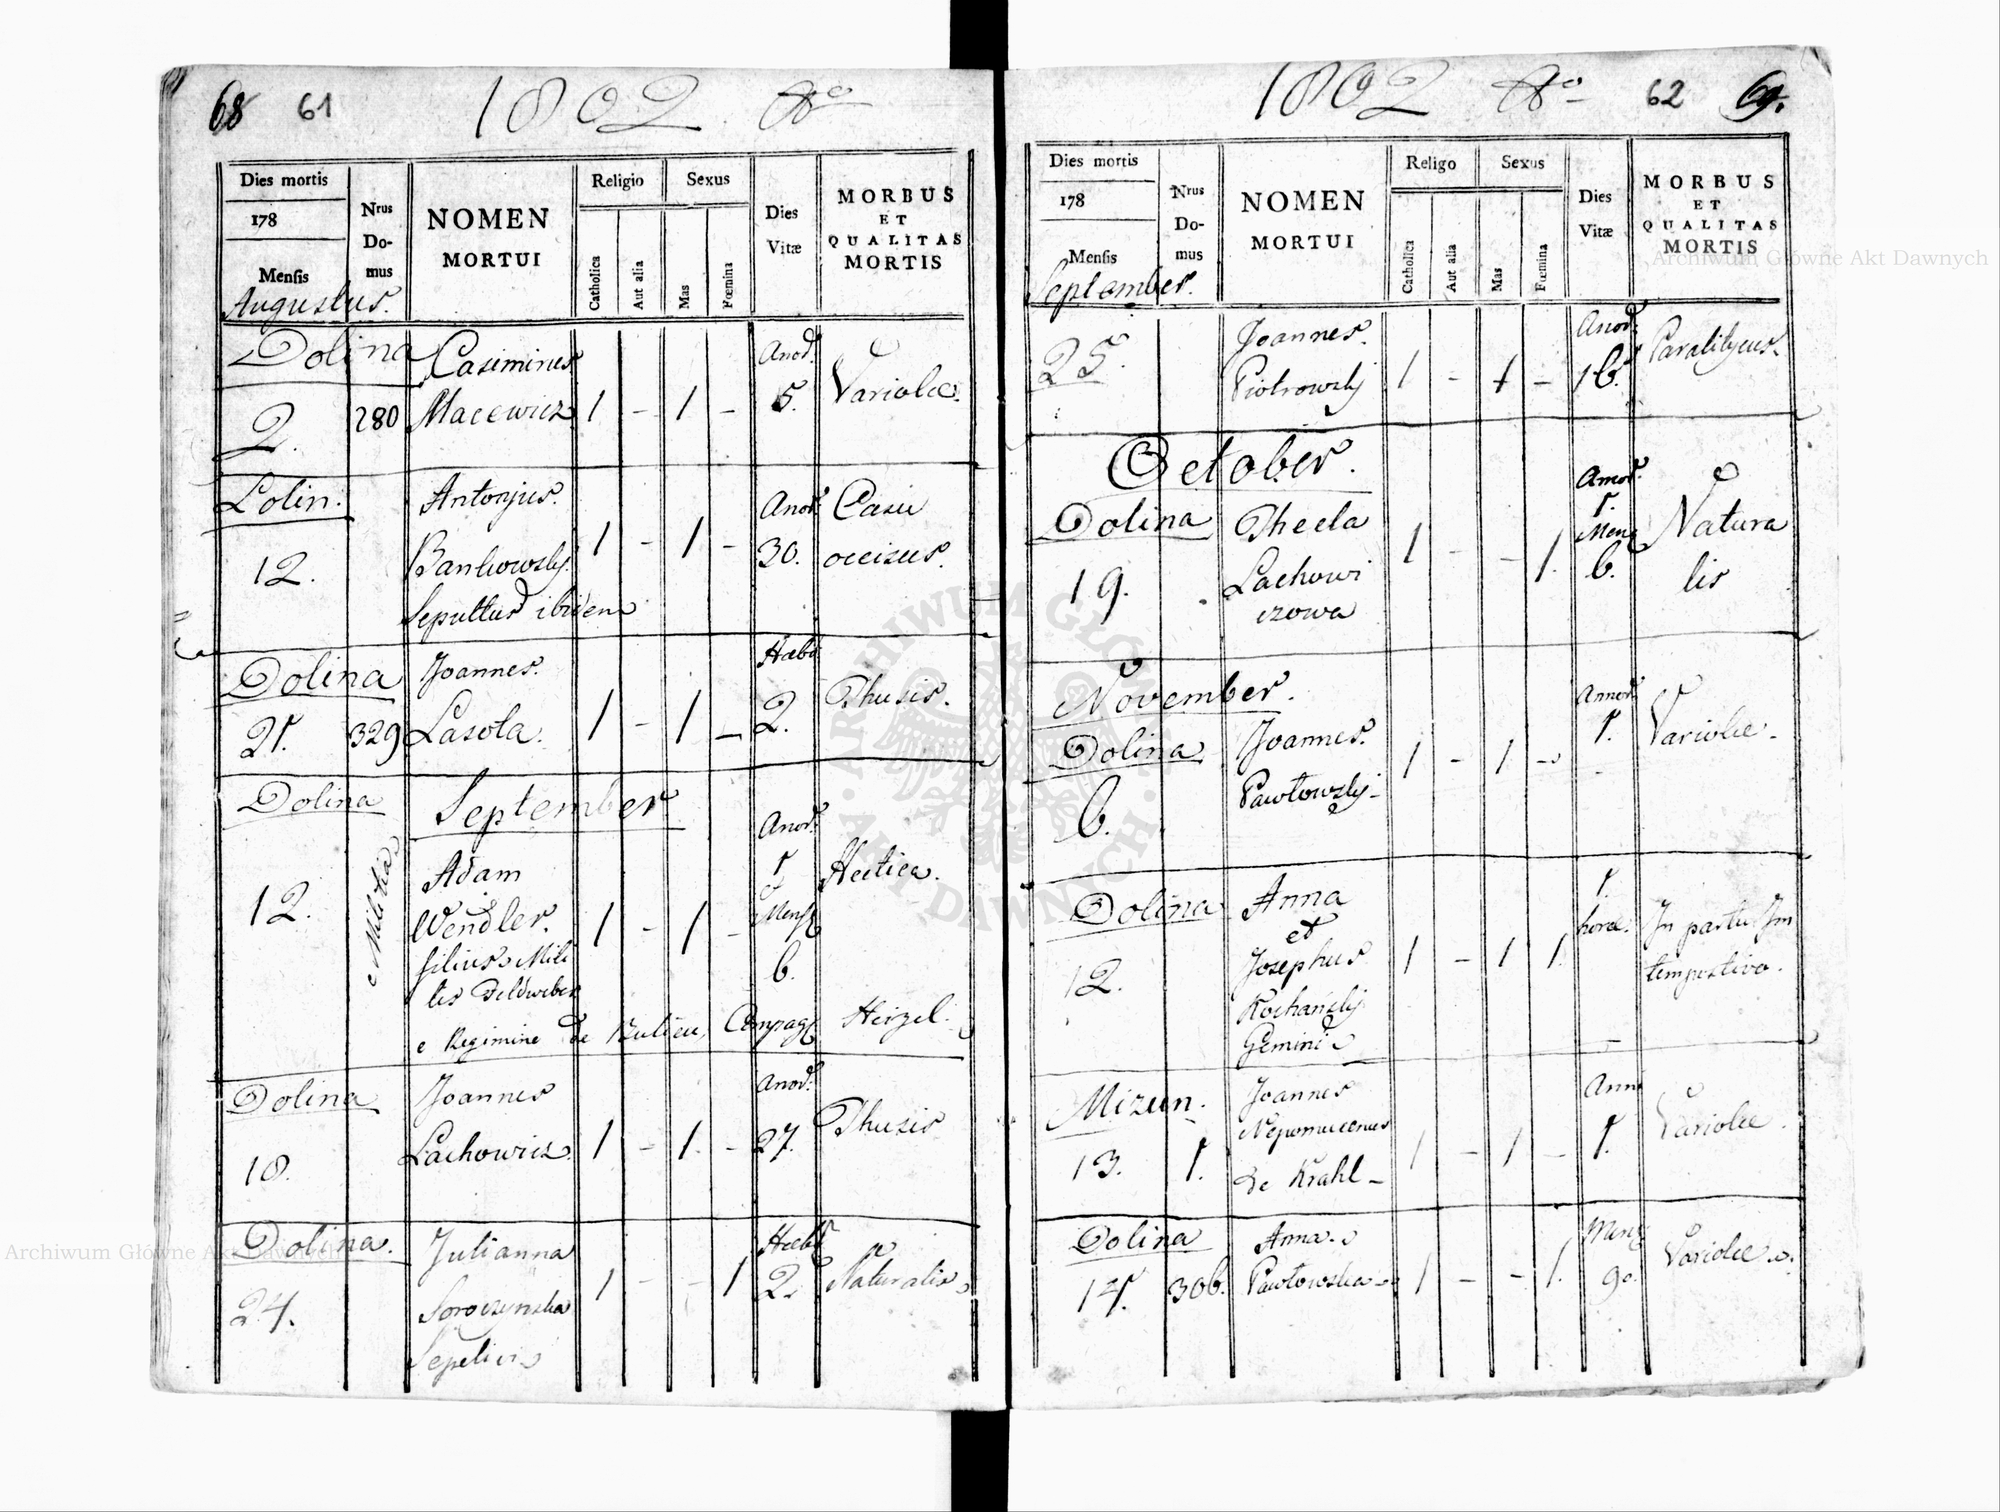 68 61 1802 Ao
Dies mortis
178
Mensis
Augustus.
Nrus
Do-
mus
NOMEN
MORTUI
Religio
Catholica
Aut alia
Sexus
Mas
Fœmina
Dies
Vitæ
MORBUS
ET
QUALITAS
MORTIS
Dolina Casimirus Anor.
2. 280 Macewicz 1 - 1 - 5. Variolæ.
Lolin. Antonjus. Anor. Casu
12. Bankowsky. 1 - 1 - 30. occisus.
Sepultus ibidem
Dolina Joannes. Hebd
21. 329 Lasota. 1 - 1 - 2. Thusis.
Dolina September
Anor.
12. Militia Adam 1 Hectica.
Wendler. 1 - 1 - et Mens
filius Mili 6.
tis Feldweber
e Regimine de Compag Herzel.
Dolina Joannes Anor.
18. Lachowicz. 1 - 1. - 27. Thusis
Dolina. Julianna Hebd
24. Soroczynska 1 - - 1 2. Naturalis
1802 Ao 62 69.
Dies mortis
178
Mensis
September.
Nrus
Do-
mus
NOMEN
MORTUI
Religo
Catholica
Aut alia
Sexus
Mas
Fœmina
Dies
Vitæ
MORBUS
ET
QUALITAS
MORTIS
25. Joannes. Anor.
Piotrowsky 1 - 1 - 16. Paralitycus.
October.
Dolina Thecla Anor. 1. Natura
19. Lachowi 1 - - 1. Mens 6. lis
czowa
November.
Dolina Joannes. Annor. 1. Variolæ.
6. Pawlowsky 1 - 1 -
Dolina Anna 1. horæ. In partu In
et tempestivo.
12. Josephus 1 - 1 1.
Kochansky
Gemini
Mizun. Joannes Anni
13. 1. Nepomucenus 1 - 1 - 1. Variolæ.
de Krahl
Dolina Anna. Mens
14. 306. Pawlowska 1 - - 1. 9. Variolæ.
ARCHIWUM GŁÓWNE AKT DAWNYCH
Archiwum Główne Akt Dawnych
Archiwum Główne Akt Dawnych